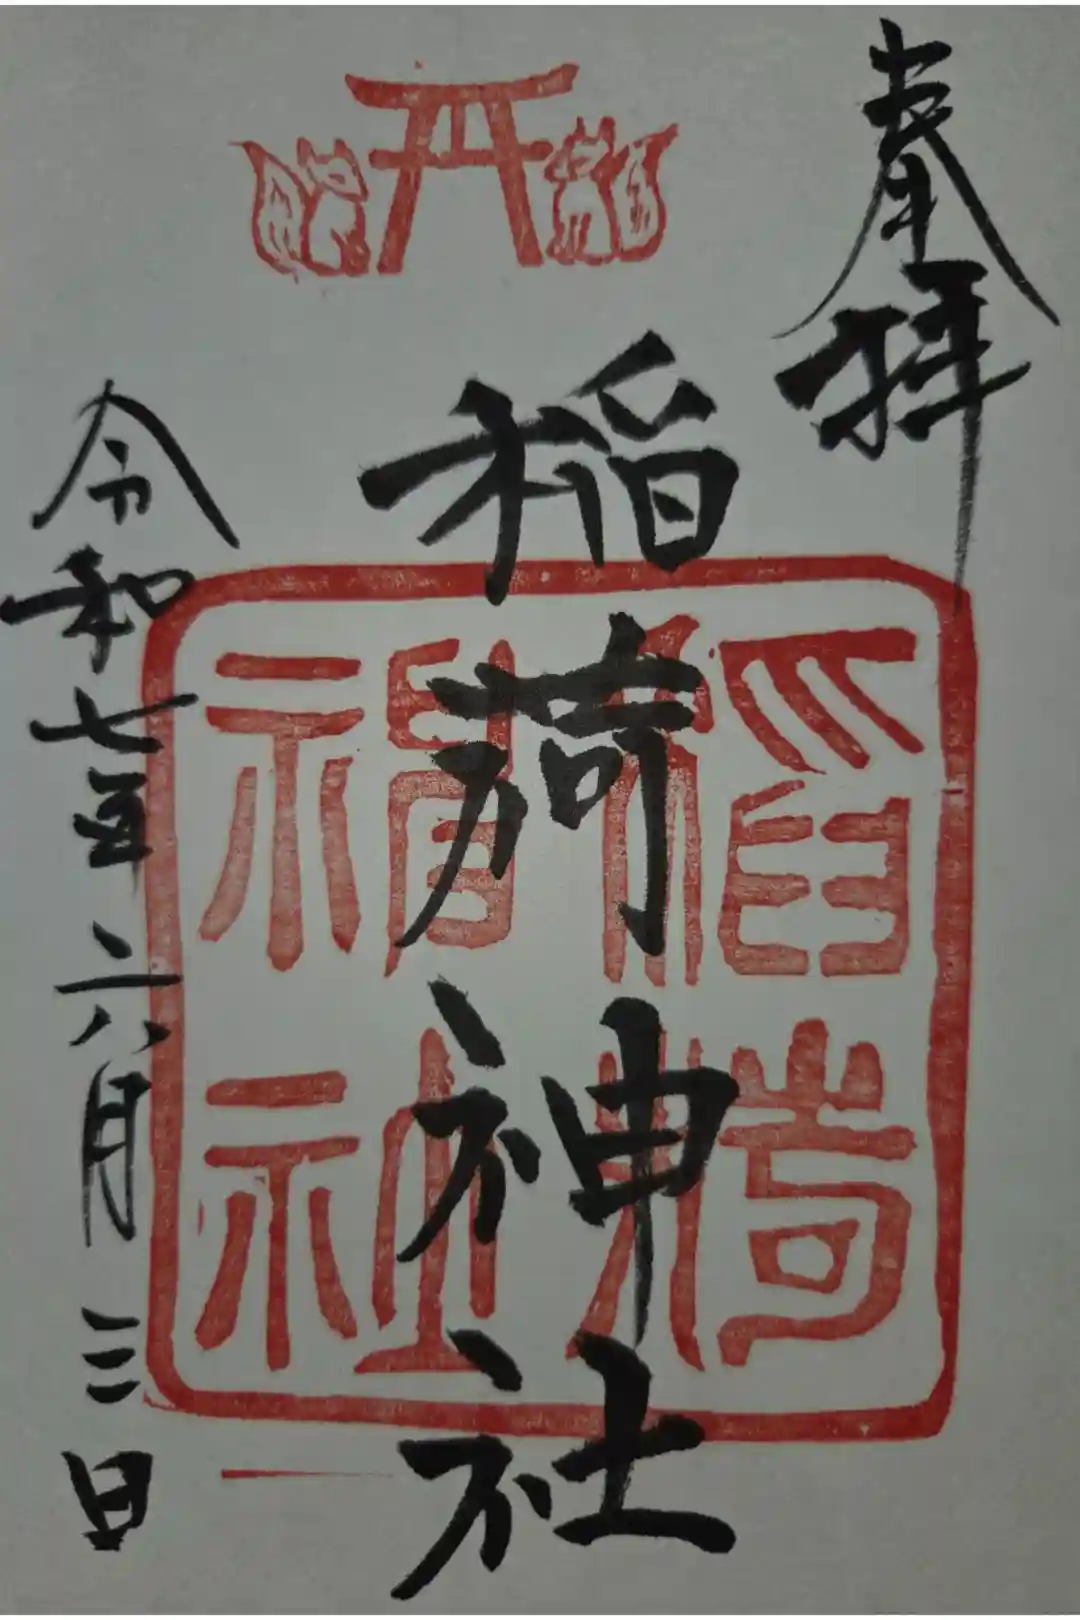 奉拝
稲荷神社
稲荷神社
令和七年六月三日